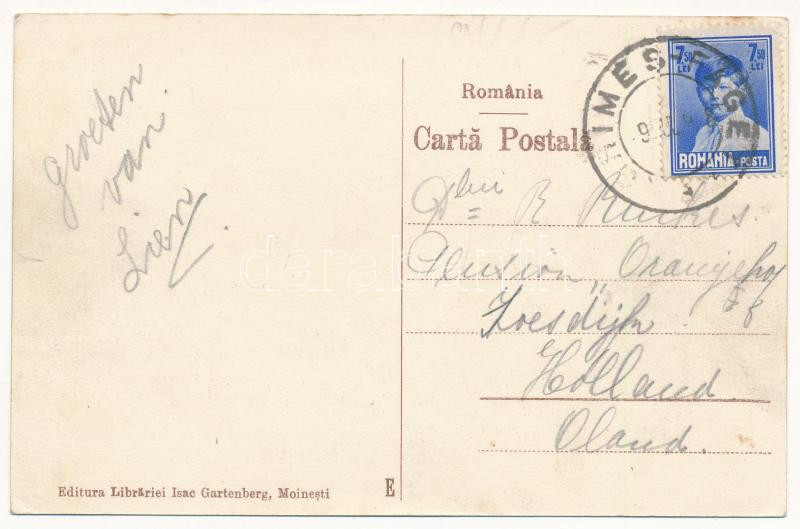 România
Cartă Postală
7 50 LEI
7 50 LEI
ROMÂNIA-POSTA
Groeten
van
Lien
R
Pension „Oranjehof"
Soesdijk
Holland
Oland.
Editura Librăriei Isac Gartenberg, Moinești
E
darabanth